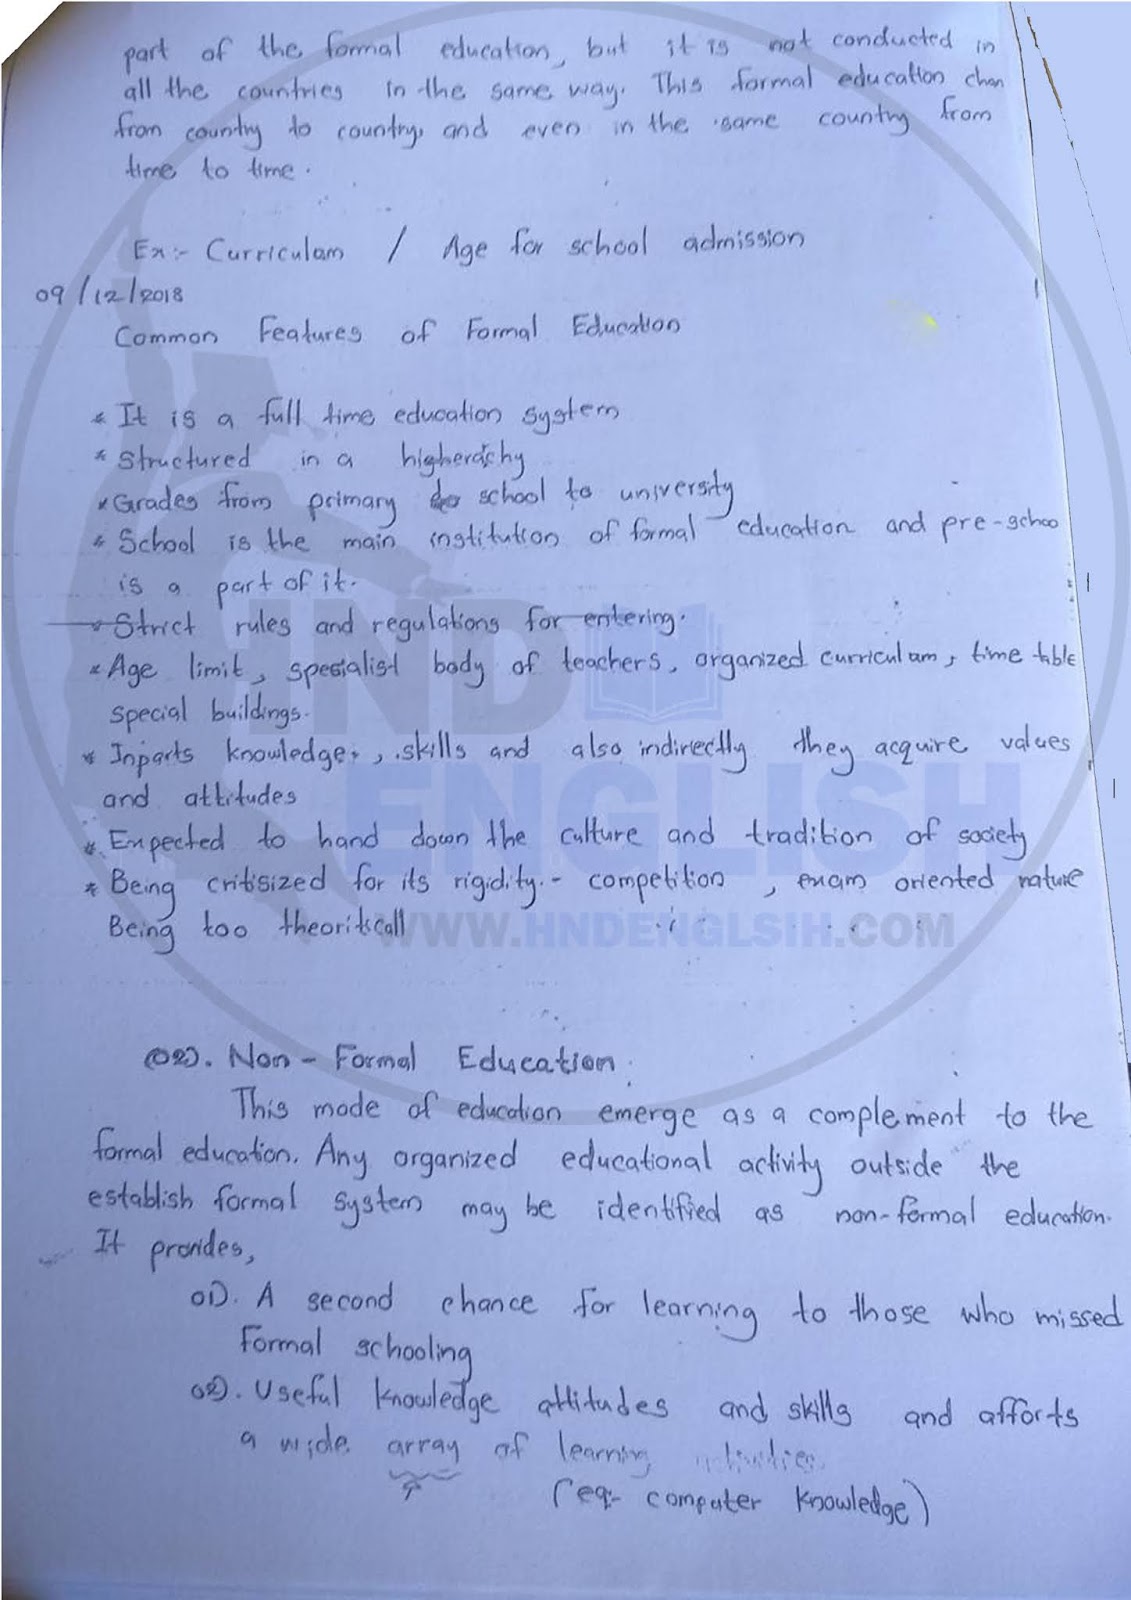 part of the formal education, but it is not conducted in
all the countries in the same way. This formal education chan
from country to country, and even in the same country from
time to time.
Ex:- Curriculam / Age for school admission
09/12/2018
Common Features of Formal Education
* It is a full time education system
* Structured in a higherachy
* Grades from primary school to university
* School is the main institution of formal education and pre-schoo
is a part of it.
* Strict rules and regulations for entering.
* Age limit, spesialist body of teachers, organized curriculam, time table
special buildings.
* Inparts knowledge, skills and also indirectly they acquire values
and attitudes
* Expected to hand down the culture and tradition of society
* Being critisized for its rigidity - competition, exam oriented nature
Being too theoriticall
HND
ENGLISH
WWW.HNDENGLSIH.COM
02). Non - Formal Education
This mode of education emerge as a complement to the
formal education. Any organized educational activity outside the
establish formal system may be identified as non-formal education.
It provides,
01). A second chance for learning to those who missed
Formal schooling
02). Useful knowledge attitudes and skills and afforts
a wide array of learning activities
(eg:- computer knowledge)